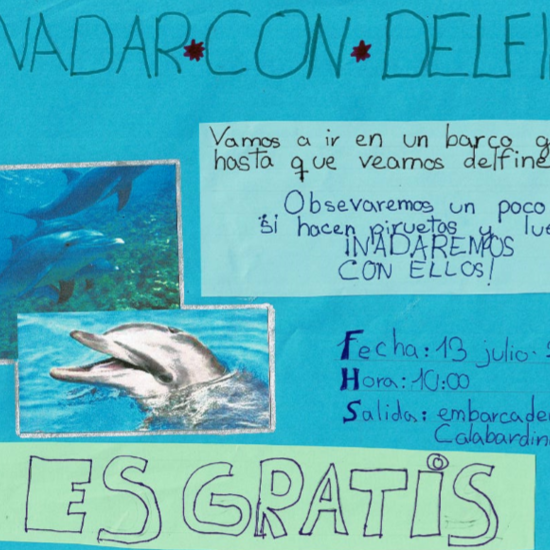 NADAR * CON * DELFI
Vamos a ir en un barco g
hasta que veamos delfine
Obsevaremos un poco
si hacen piruetas y lue
¡NADAREMOS
CON ELLOS!
Fecha: 13 julio
Hora: 10:00
Salida: embarcade
Calabardin
ES GRATIS